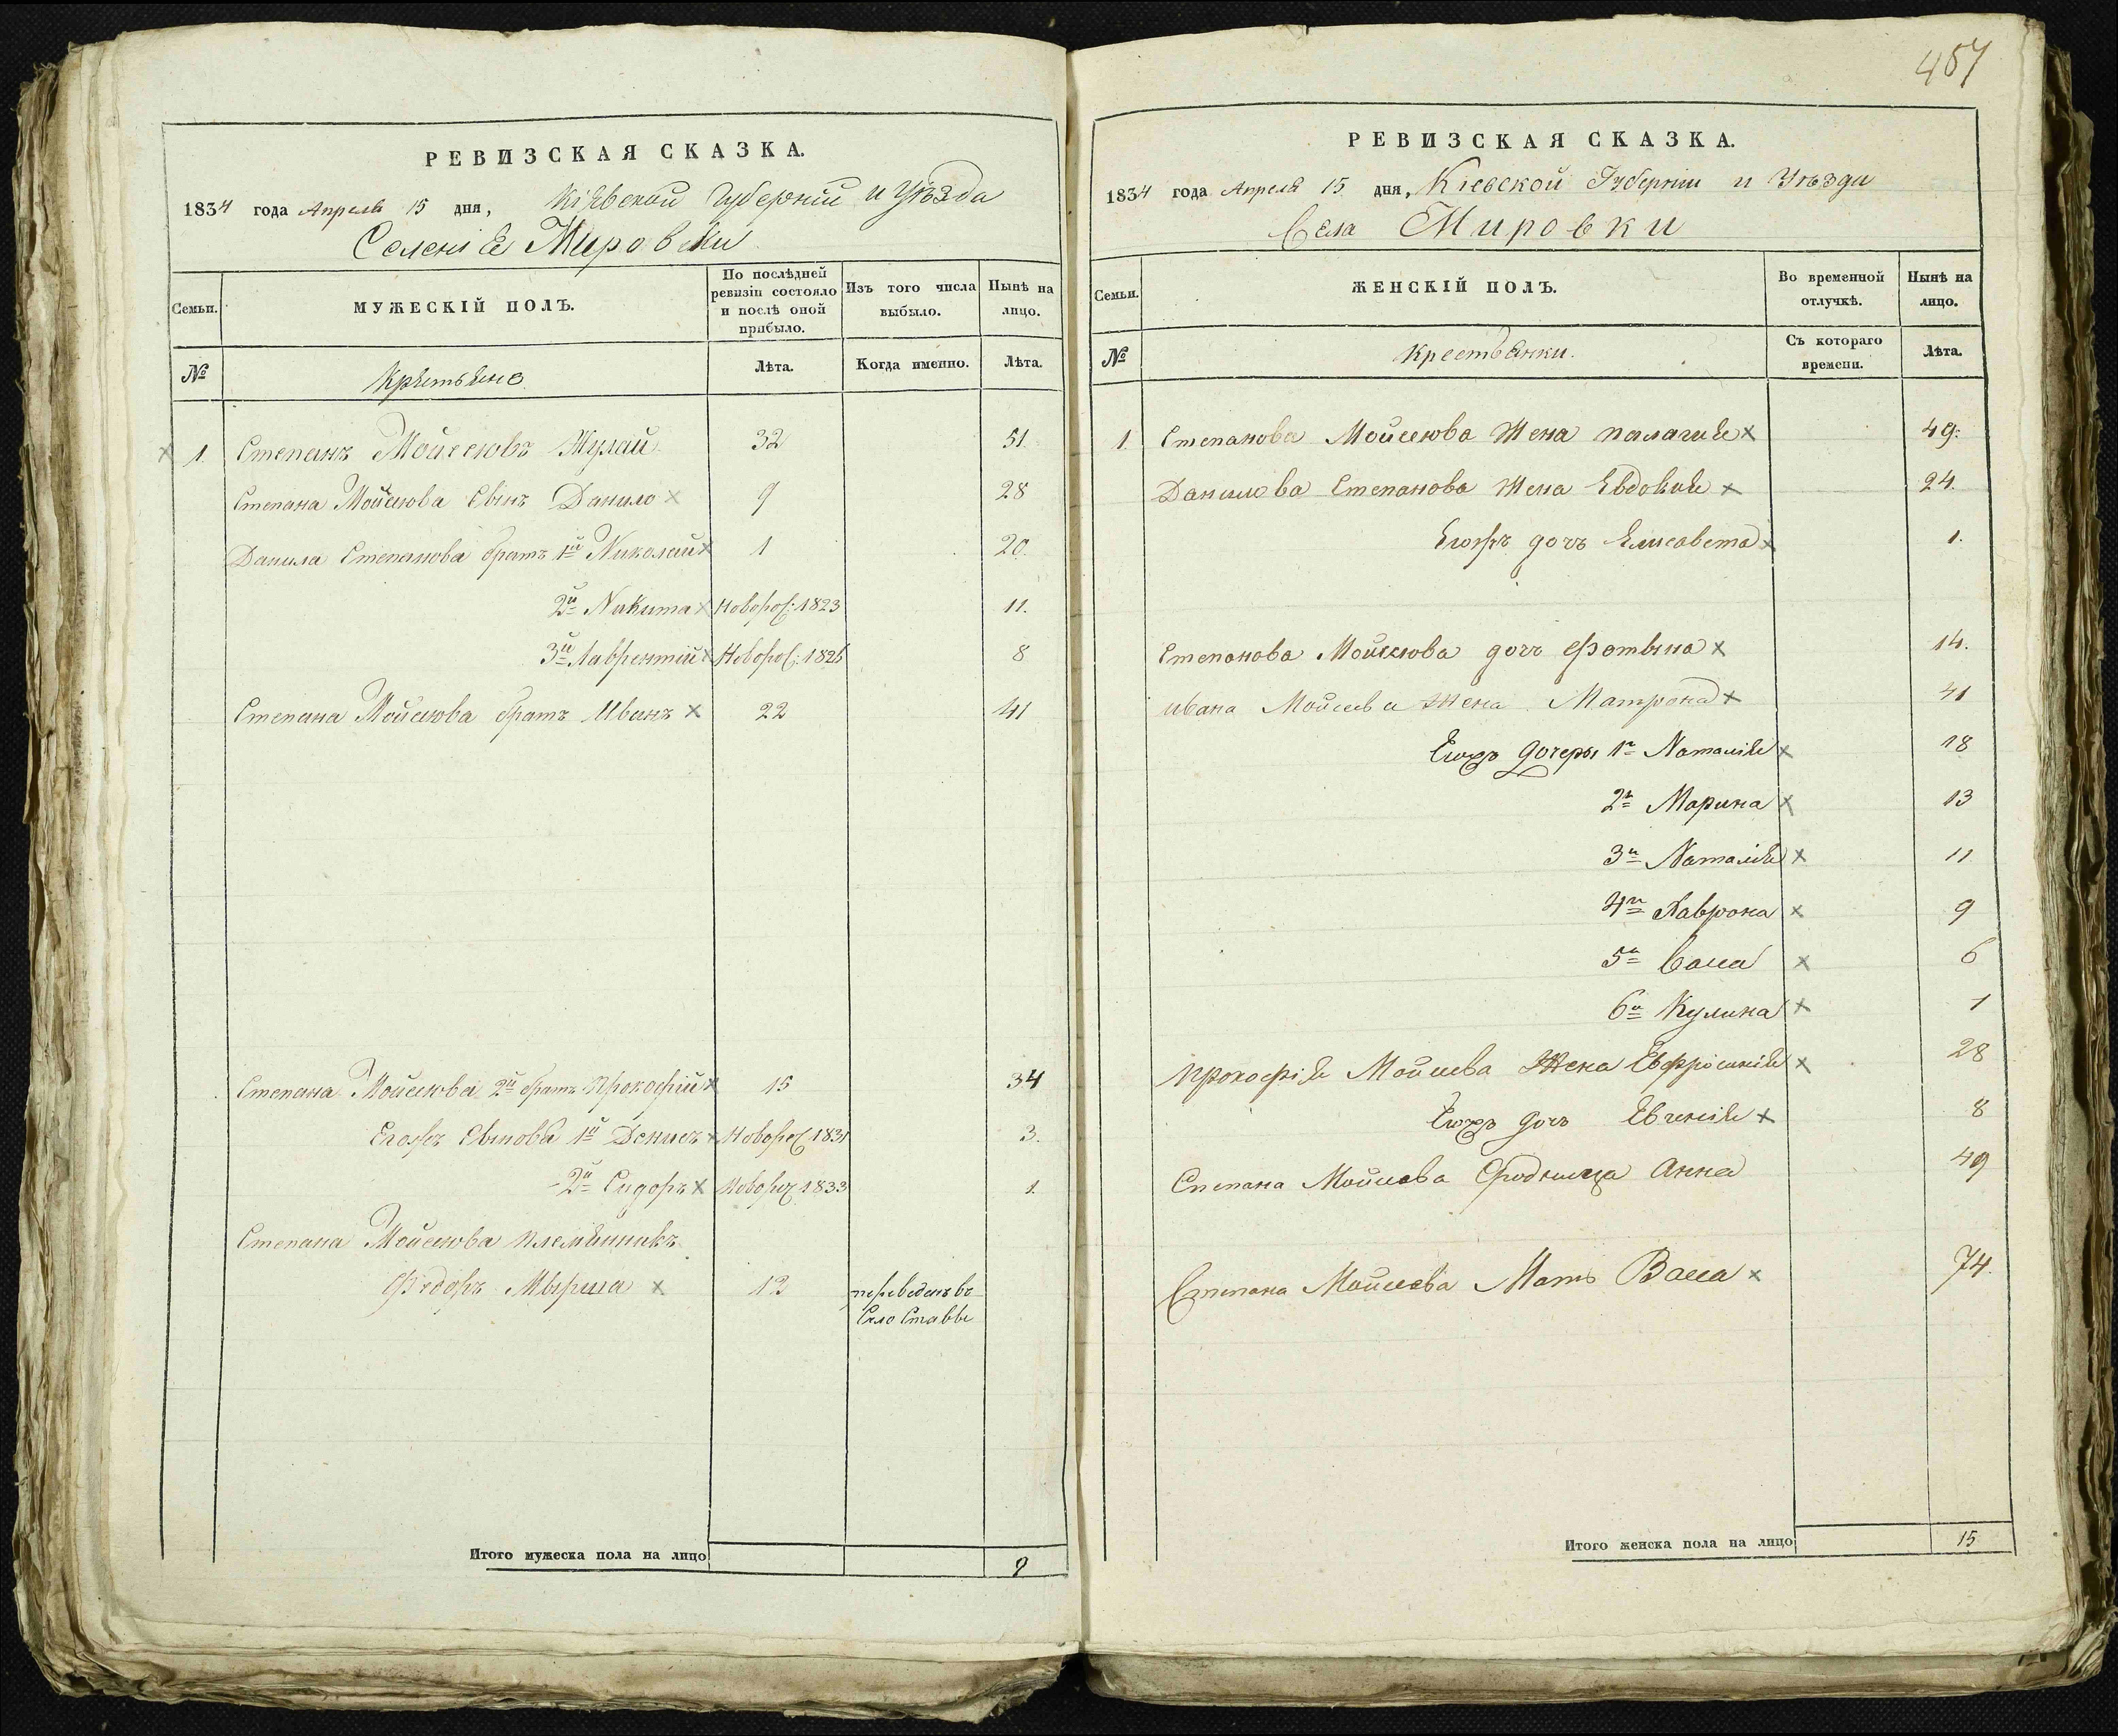 457
РЕВИЗСКАЯ СКАЗКА.
1834 года Апреля 15 дня, Кіевской Губерніи и Уѣзда
Селенія Мировки
Семьи.
МУЖЕСКІЙ ПОЛЪ.
По послѣдней ревизіи состояло и послѣ оной прибыло.
Изъ того числа выбыло.
Нынѣ на лицо.
№
Крѣстьяне
Лѣта.
Когда именно.
Лѣта.
1. Степанъ Мойсеювъ Жулай 32 51.
Степана Мойсеюва Сынъ Данило 9 28
Данила Степанова братъ 1й Николай 1 20.
2й Никита Новорож: 1823 11.
3й Лаврентій Новорож: 1826 8
Степана Мойсеюва братъ Иванъ 22 41
Степана Мойсеюва 2й братъ Прокофій 15 34
Егожъ Сынова 1й Денисъ Новорож 1831 3.
2й Сидоръ Новорож 1833 1.
Степана Мойсеюва племянникъ
Федоръ 12 переведенъ въ
Село Ставы
Итого мужеска пола на лицо 9
РЕВИЗСКАЯ СКАЗКА.
1834 года Апреля 15 дня, Кіевской Губерніи и Уѣзда
Села Мировки
Семьи.
ЖЕНСКІЙ ПОЛЪ.
Во временной отлучкѣ.
Нынѣ на лицо.
№
Крестьянки.
Съ котораго времени.
Лѣта.
1. Степанова Мойсеюва Жена Палагия 49.
Данилова Степанова Жена Евдокия 24.
Егожъ дочь Елисавета 1.
Степанова Мойсеюва дочь Фотына 14.
Ивана Мойсева Жена Матрона 41
Егожъ дочеры 1я Наталія 18
2я Марина 13
3я Наталія 11
4я 9
5я Васса 6
6я Кулина 1
Прокофія Мойсева Жена Евфросинія 28
Егожъ дочь Евгенія 8
Степана Мойсева Анна 49
Степана Мойсева Мать Васса 74.
Итого женска пола на лицо 15